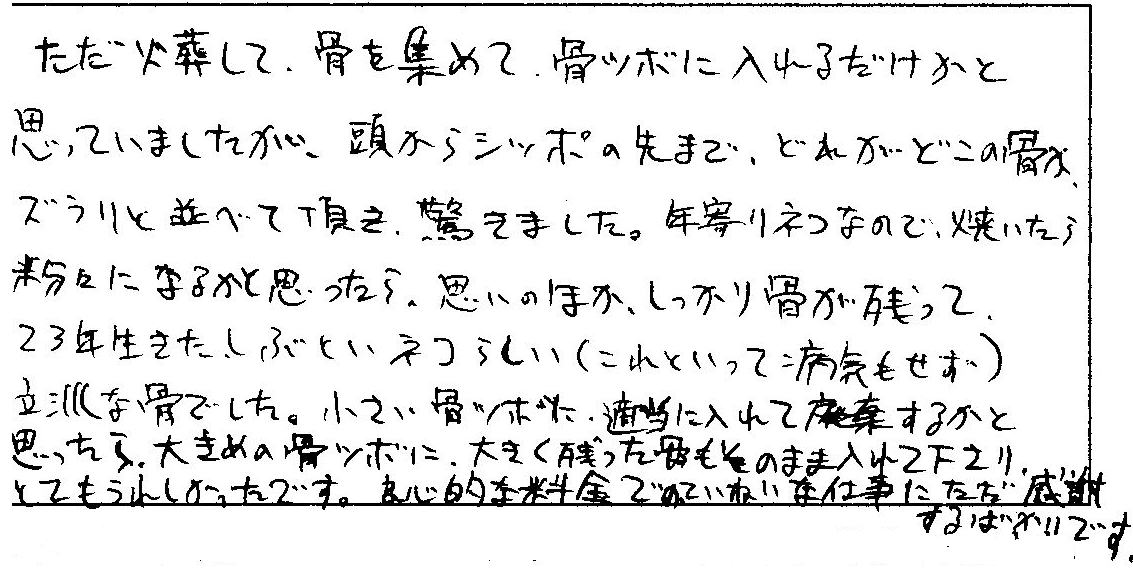 ただ火葬して、骨を集めて、骨ツボに入れるだけかと
思っていましたが、頭からシッポの先まで、どれがどこの骨か、
ズラリと並べて頂き、驚きました。年寄りネコなので、焼いたら
粉々になるかと思ったら、思いのほか、しっかり骨が残って、
23年生きた、しぶといネコらしい(これといって病気もせず)
立派な骨でした。小さい骨ツボに、適当に入れて廃棄するかと
思ったら、大きめの骨ツボに、大きく残った骨もそのまま入れて下さり、
とてもうれしかったです。良心的な料金でのていねいな仕事にただ感謝
するばかりです。